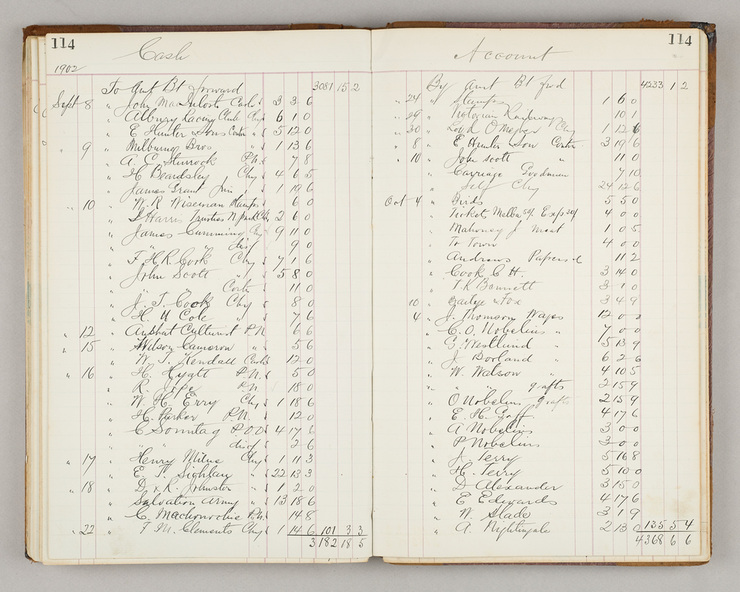 114
Cash
1902
To Amt Bt forward 3081 15 2
Sept 8 " John MacIntosh Cash 3 3 6
" Albury Racing Club Chq 6 1 0
" E Hunter & Sons 5 12 0
" 9 " Milburns Bros " 1 13 6
" A. C. Sturrock P.N. 7 8
" H Beardsley Chq 4 6 5
" James Grant Jun " 1 19 6
" 10 " W. R. Wiseman Stamps 6 0
" S Harris 2 6 0
" James Cumming Chq 9 11 0
" " " disct 9 0
" F. H. R. Cook Chq 7 1 6
" John Scott " 5 8 0
" " " 11 0
" J. T. Cook Chq 8 0
" H. U Cole " 7 6
" 12 " Culturist P.N 6 6
" 15 " Wilson Cameron " 5 6
" W. J. Kendall 12 0
" 16 " H. Hyatt P.N. 5 0
" R. P.N. 18 0
" W H. Erry Chq 1 18 6
" H. Parker P.N. 12 0
" C Sonntag P.O.D 4 17 6
" " disct 2 6
" 17 " Henry Milne Chq 1 11 3
" E. T. " 22 13 3
" 18 " D. & R. Johnston " 1 2 0
" Salvation Army " 13 18 6
" C. Machonochie P.N. 14 8
" 22 " F. M. Clements Chq 1 14 6 101 3 3
3182 18 5
114
Account
By Amt Bt fwd 4233 1 2
" 24 " Stamps 1 6 0
" 29 " 10 1
" 30 " Chq 1 12 6
" 8 " E. Hunter Son 3 19 6
" 10 " John Scott " 11 0
" Carriage 7 10
" Self Chq 24 12 6
Oct 4 " Birds 5 5 0
" Tickets 4 0 0
" Mahoney J Meat 1 0 5
" To Town 4 0 0
" Andrews 11 2
" Cook C. H. 3 14 0
" T. R Bennett 3 1 0
10 " & Fox 3 4 9
4 " J. Thomson Wages 12 0 0
" C. O. Nobelius " 7 0 0
" G. Westlund " 5 13 9
" J. Borland " 6 2 6
" W. Watson " 4 10 5
" " " grafts 2 15 9
" O Nobelius grafts 2 15 9
" E. H. Goff 4 17 6
" A Nobelius 3 0 0
" P Nobelius 3 0 0
" J. Terry 5 16 8
" H. Terry 5 10 0
" D Alexander 3 15 0
" E Edwards 4 17 6
" W. Slade 3 1 9
" A. Nightingale 2 13 0 135 5 4
4368 6 6